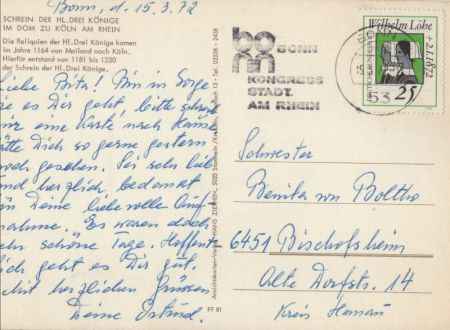 Bonn, d. 15.3.72
SCHREIN DER HL. DREI KÖNIGE
IM DOM ZU KÖLN AM RHEIN
Die Reliquien der Hl. Drei Könige kamen
im Jahre 1164 von Mailand nach Köln.
Hierfür entstand von 1181 bis 1230
der Schrein der Hl. Drei Könige.
Liebe Brita! Bin in Sorge
wie es Dir geht, bitte schreib
mir eine Karte nach Hause
hätte Dich so gerne gestern
noch gesehen. Sei sehr lieb
und herzlich bedankt
für Deine liebevolle Auf-
nahme. Es waren doch
sehr schöne Tage. Hoffent-
lich geht es Dir gut.
Mit herzlichen Grüssen
Deine
FF 81
Ansichtskarten-Verlag HANS ZIETHEN, 5025 Stommeln/Köln, Tel. 02238 - 2438
BONN
KONGRESS
STADT
AM RHEIN
53
Wilhelm Löhe
+2.1.1872
DEUTSCHE BUNDESPOST
25
Schwester
Benita von Boltho
6451 Bischofsheim
Alte Dorfstr. 14
Kreis Hanau